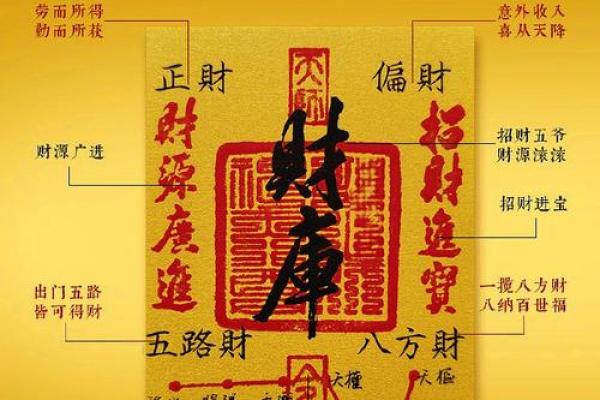 劳而所得
勤而所获
意外收入
喜从天降
正財
天師
偏財
財源廣進
財庫
招財進寶
财源广进
招财五爷
财源滚滚
招财进宝
出门五路
皆可得财
一揽八方财
八纳百世福
五路財
八方財
天權
天樞